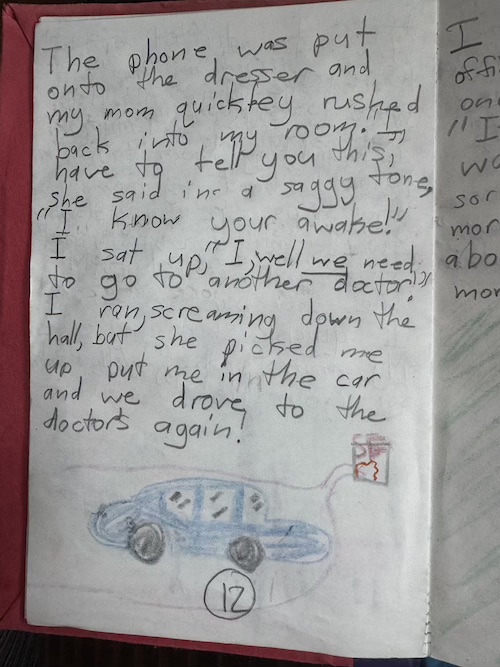 The phone was put
onto the dresser and
my mom quicktey rushed
back into my room. "I
have to tell you this,
she said in a saggy tone,
"I know your awake!"
I sat up, "I, well we need
to go to another doctor!"
I ran, screaming down the
hall, but she picked me
up put me in the car
and we drove to the
doctors again!
12
I
offi
on
"I
wa
sor
mor
abo
mor